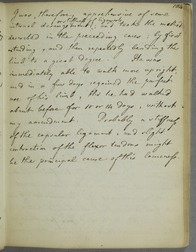 Guor, therefore, apprehensive of some
internal derangement, and tried the method
revolted in the preceding cases, by fast
standing, and then repeatedly bending the
limb to a great degree. He was
immediately able to walk more upright,
and in a few days regained the perfect
use of his limb, tho' he had walked
about before for 10 or 14 days, without
any amendment. Probably a stiffness
of the capsular ligament, and slight
contraction of the flexor tendons might
be the principal cause of this lameness.